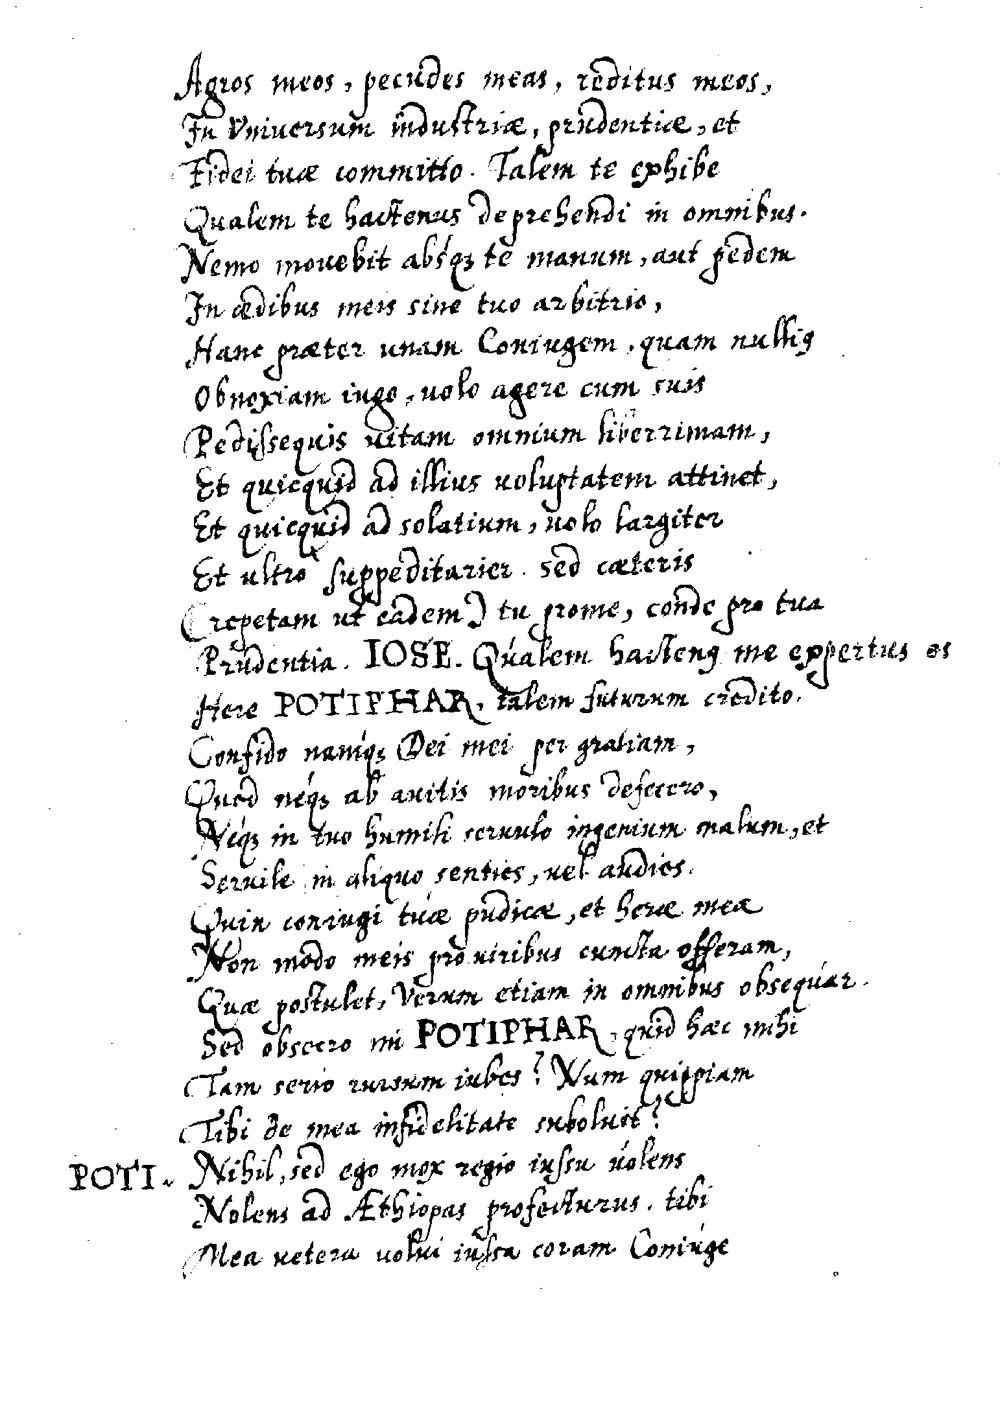 Agros meos, pecudes meas, reditus meos,
In Vniuersum industriæ, prudentiæ, et
Fidei tuæ committo. Talem te exhibe
Qualem te hactenus deprehendi in omnibus.
Nemo movebit absq́ꝫ te manum, aut pedem
In ædibus meis sine tuo arbitrio,
Hanc præter unam Coniugem, quam nulliꝰ
Obnoxiam iugo, uolo agere cum suis
Pedissequis uitam omnium liberrimam,
Et quicquid ad illius uoluptatem attinet,
Et quicquid ad solatium, uolo largiter
Et ultro suppeditarier. sed cæteris
(repetam ut eadem) tu prome, conde pro tua
Prudentia. IOSE. Qualem hactenꝰ me expertus es
Here POTIPHAR, talem futurum credito.
Confido namq́ꝫ Dei mei per gratiam,
Quod neq́ꝫ ab auitis moribus defecero,
Neq́ꝫ in tuo humili seruulo ingenium malum, et
Seruile in aliquo senties, uel audies.
Quin coniugi tuæ pudicæ, et heræ meæ
Non modo meis pro uiribus cuncta offeram,
Quæ postulet, Verum etiam in omnibus obsequar.
Sed obsecro mi POTIPHAR, quid hæc mihi
Tam serio rursum iubes? Num quippiam
Tibi de mea infidelitate suboluit?
POTI. Nihil, sed ego mox regio iussu uolens
Nolens ad Æthiopas profecturus. tibi
Mea uetera uolui iussa coram Coniuge